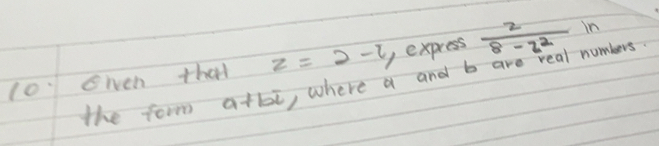 10. Given that z = 2 - i, express z/(8 - z²) in
the form a+bi, where a and b are real numbers.